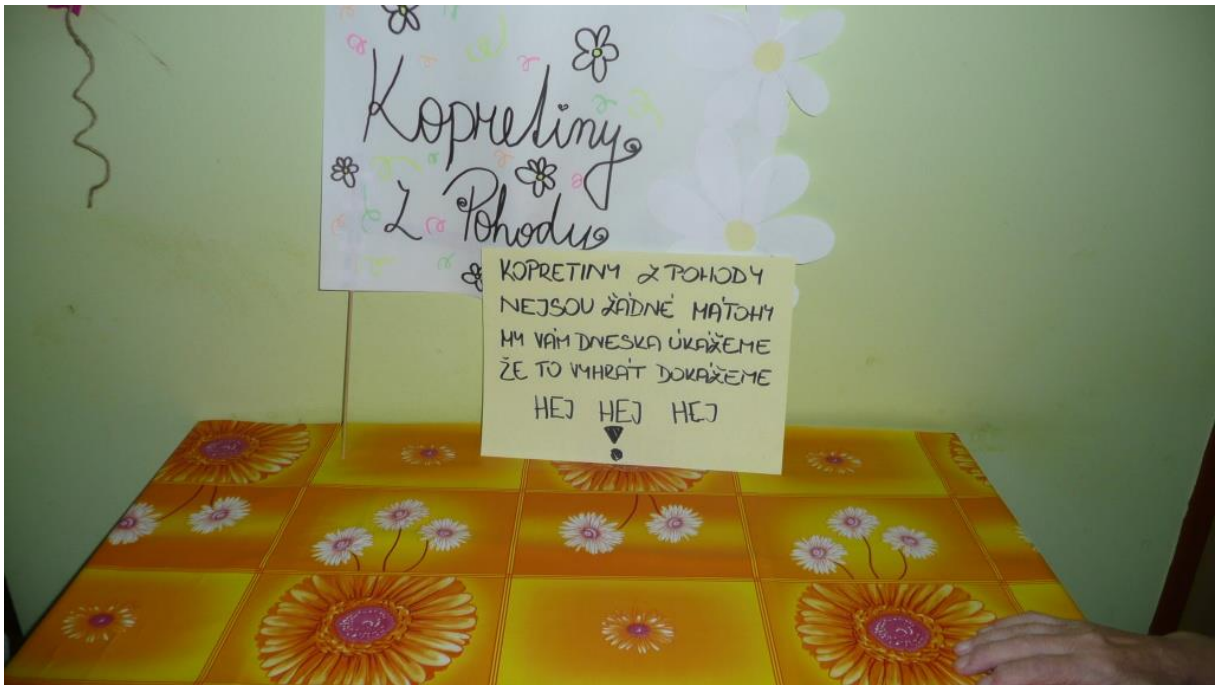 Kopretiny
Z Pohody
KOPRETINY Z POHODY
NEJSOU ŽÁDNÉ MÁTOHY
MY VÁM DNESKA ÚKÁŽEME
ŽE TO VYHRÁT DOKÁŽEME
HEJ HEJ HEJ
!